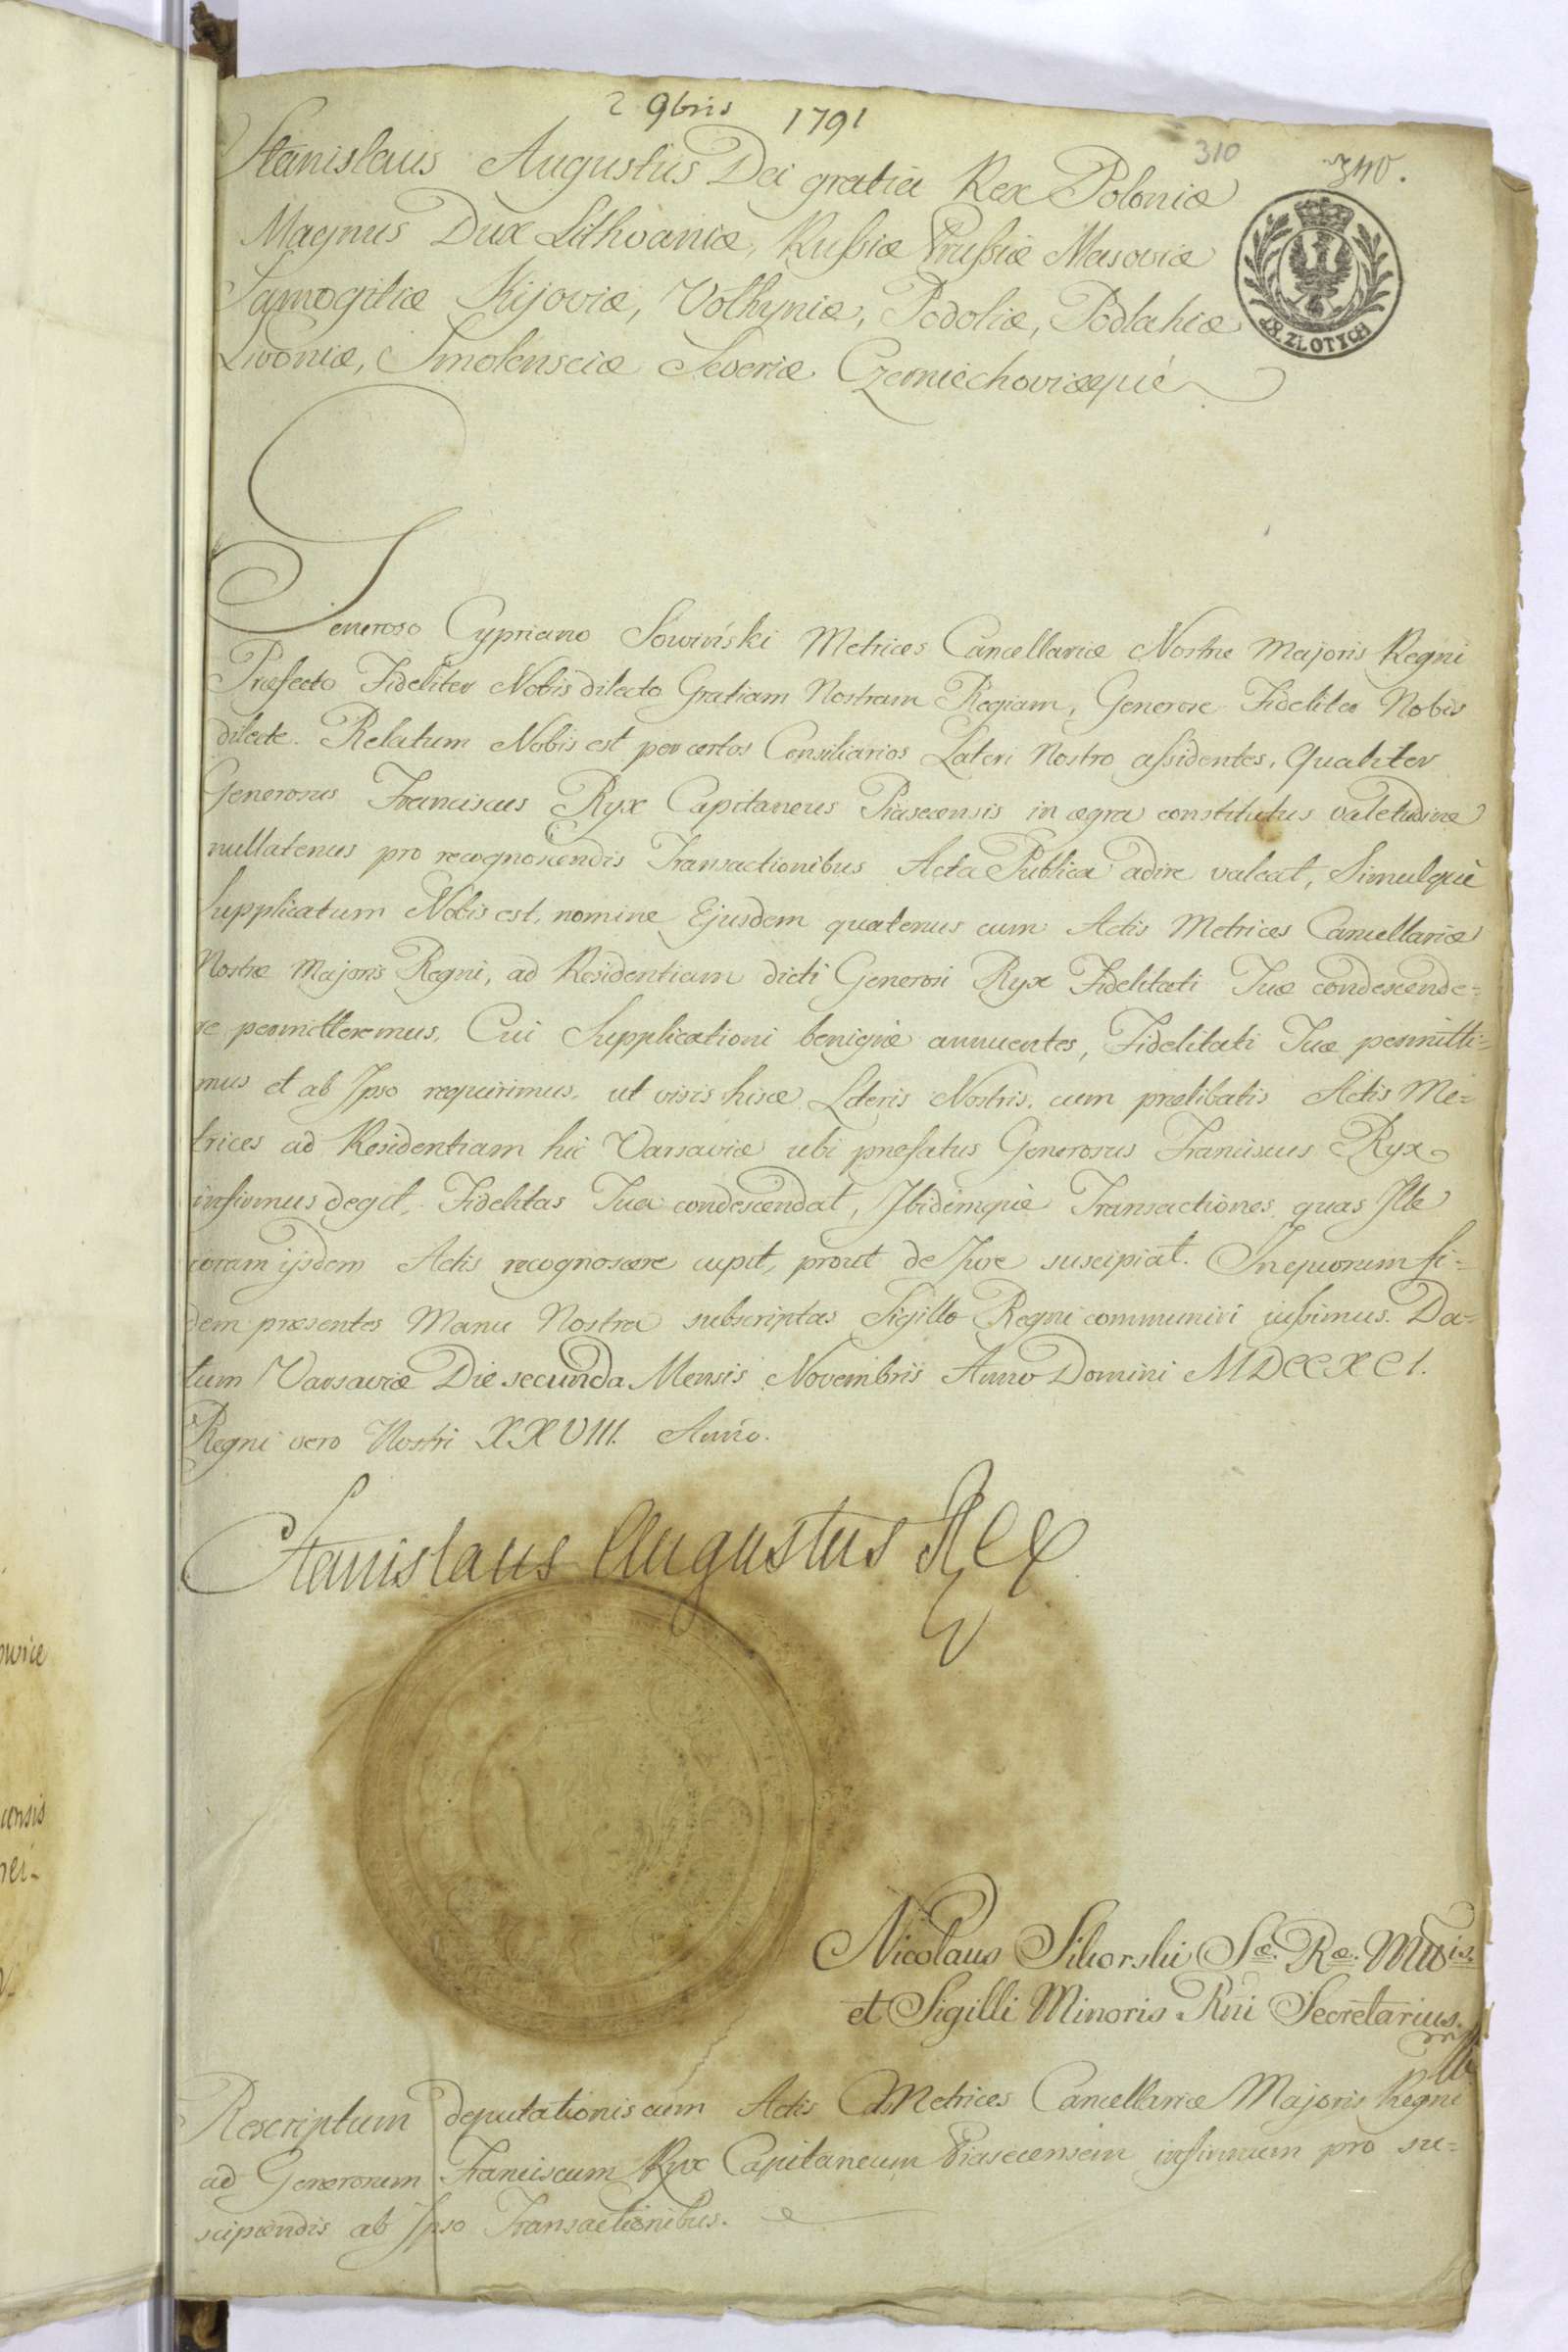 2 9bris 1791
310
340.
Stanislaus Augustus Dei gratia Rex Poloniæ
Magnus Dux Lithvaniæ, Rußiæ Prußiæ Masoviæ
Samogitiæ Kijoviæ, Volhyniæ, Podoliæ, Podlahiæ
Livoniæ, Smolensciæ Severiæ Czerniechoviæque
18. ZŁOTYCH
Generoso Cypriano Sowiński Metrices Cancellariæ Nostræ Majoris Regni
Præfecto Fideliter Nobis dilecto Gratiam Nostram Regiam, Generose Fideliter Nobis
dilecte. Relatum Nobis est per certos Consiliarios Lateri Nostro aßidentes, Qualiter
Generosus Franciscus Ryx Capitaneus Piasecensis in ægra constitutus valetudine
nullatenus pro recognoscendis Transactionibus Acta Publica adire valeat, Simulquè
Supplicatum Nobis est, nomine Ejusdem quatenus cum Actis Metrices Cancellariæ
Nostræ Majoris Regni, ad Residentiam dicti Generosi Ryx Fidelitati Tuæ condescende=
re permitteremus. Cui Supplicationi benignè annuentes, Fidelitati Tuæ permitti=
mus et ab Ipso requirimus, ut visis hisce Literis Nostris, cum prælibatis Actis Me=
trices ad Residentiam hic Varsaviæ ubi præfatus Generosus Franciscus Ryx
infirmus degit, Fidelitas Tua condescendat, Ibidemquè Transactiones quas Ille
coram ijsdem Actis recognoscere cupit, prout de Jure suscipiat. In quorum fi=
dem præsentes Manu Nostra subscriptas Sigillo Regni communiri jußimus. Da=
tum Varsaviæ Die secunda Mensis Novembris Anno Domini MDCCXCI.
Regni vero Nostri XXVIII. Anno.
Stanislaus Augustus Rex
Nicolaus Sikorski Sæ. Ræ. Mtis.
et Sigilli Minoris Rni Secretarius.
Rescriptum deputationis cum Actis Metrices Cancellariæ Majoris Regni
ad Generosum Franciscum Ryx Capitaneum Piasecensem infirmum pro su=
scipiendis ab Ipso Transactionibus.